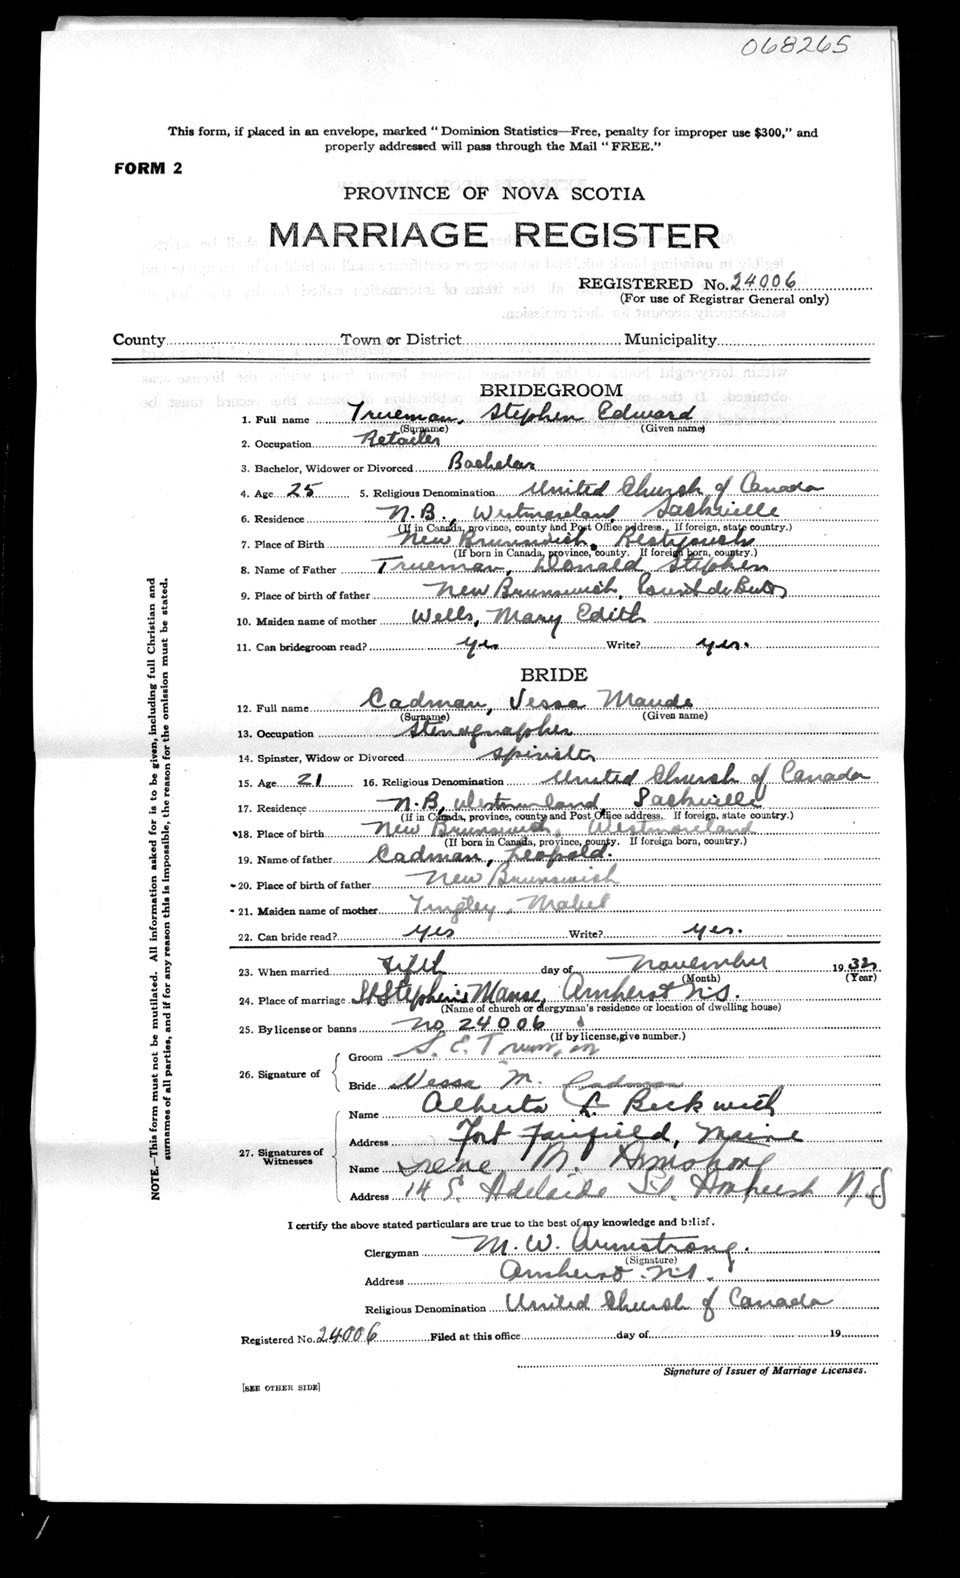 068265
This form, if placed in an envelope, marked "Dominion Statistics—Free, penalty for improper use $300," and
properly addressed will pass through the Mail "FREE."
FORM 2
PROVINCE OF NOVA SCOTIA
MARRIAGE REGISTER
REGISTERED No. 24006
(For use of Registrar General only)
County Town or District Municipality
BRIDEGROOM
1. Full name Trueman, Stephen Edward
(Surname) (Given name)
2. Occupation Retailer
3. Bachelor, Widower or Divorced Bachelor
4. Age 25 5. Religious Denomination United Church of Canada
6. Residence N.B., Westmoreland, Sackville
(If in Canada, province, county and Post Office address. If foreign, state country.)
7. Place of Birth New Brunswick,
(If born in Canada, province, county. If foreign born, country.)
8. Name of Father Trueman, Donald Stephen
9. Place of birth of father New Brunswick, Point de Bute
10. Maiden name of mother Wells, Mary Edith
11. Can bridegroom read? yes Write? yes.
BRIDE
12. Full name Cadman, Vessa Maude
(Surname) (Given name)
13. Occupation Stenographer
14. Spinster, Widow or Divorced Spinster
15. Age 21 16. Religious Denomination United Church of Canada
17. Residence N.B, Westmoreland, Sackville
(If in Canada, province, county and Post Office address. If foreign, state country.)
18. Place of birth New Brunswick, Westmoreland
(If born in Canada, province, county. If foreign born, country.)
19. Name of father Cadman, Leopold.
20. Place of birth of father New Brunswick
21. Maiden name of mother Tingley, Mabel
22. Can bride read? yes Write? yes.
23. When married Fifth day of November 1932
(Month) (Year)
24. Place of marriage St Stephen's Manse, Amherst N.S.
(Name of church or clergyman's residence or location of dwelling house)
25. By license or banns no 24006
(If by license, give number.)
26. Signature of
Groom S. E. Trueman
Bride Vessa M. Cadman
27. Signatures of Witnesses
Name Alberta L. Beckwith
Address Fort Fairfield, Maine
Name Irene M. Armstrong
Address 14 E. Adelaide St. Amherst N.S
I certify the above stated particulars are true to the best of my knowledge and belief.
Clergyman M. W. Armstrong.
(Signature)
Address Amherst N.S.
Religious Denomination United Church of Canada
Registered No. 24006 Filed at this office day of 19
Signature of Issuer of Marriage Licenses.
[SEE OTHER SIDE]
NOTE.—This form must not be mutilated. All information asked for is to be given, including full Christian and
surnames of all parties, and if for any reason this is impossible, the reason for the omission must be stated.